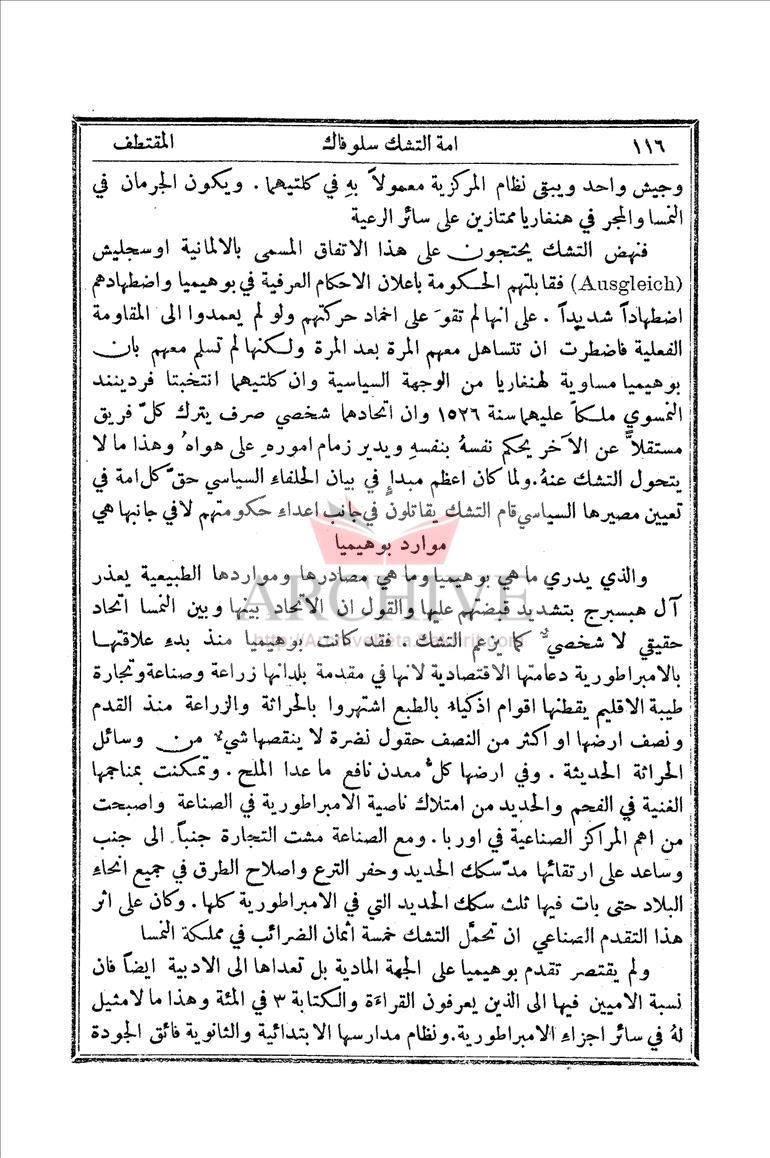 ١١٦ امة التشك سلوفاك المقتطف
وجيش واحد ويبقى نظام المركزية معمولاً بهِ في كلتيهما . ويكون الجرمان في
النمسا والمجر في هنغاريا ممتازين على سائر الرعية
فنهض التشك يحتجون على هذا الاتفاق المسمى بالالمانية اوسجليش
(Ausgleich) فقابلتهم الحكومة باعلان الاحكام العرفية في بوهيميا واضطهادهم
اضطهاداً شديداً . على انها لم تقوَ على اخماد حركتهم ولو لم يعمدوا الى المقاومة
الفعلية فاضطرت ان تتساهل معهم المرة بعد المرة ولكنها لم تسلم معهم بان
بوهيميا مساوية لهنغاريا من الوجهة السياسية وان كلتيهما انتخبتا فردينند
النمسوي ملكاً عليهما سنة ١٥٢٦ وان اتحادهما شخصي صرف يترك كلّ فريق
مستقلاًّ عن الآخر يحكم نفسهُ بنفسهِ ويدير زمام امورهِ على هواهُ وهذا ما لا
يتحول التشك عنهُ . ولما كان اعظم مبداٍ في بيان الحلفاء السياسي حقّ كل امة في
تعيين مصيرها السياسي قام التشك يقاتلون في جانب اعداءِ حكومتهم لا في جانبها هي
موارد بوهيميا
والذي يدري ما هي بوهيميا وما هي مصادرها ومواردها الطبيعية يعذر
آل هبسبرج بتشديد قبضتهم عليها والقول ان الاتحاد بينها وبين النمسا اتحاد
حقيقي لا شخصيٌّ كما يزعم التشك . فقد كانت بوهيميا منذ بدءِ علاقتها
بالامبراطورية دعامتها الاقتصادية لانها في مقدمة بلدانها زراعة وصناعة وتجارة
طيبة الاقليم يقطنها اقوام اذكياء بالطبع اشتهروا بالحراثة والزراعة منذ القدم
ونصف ارضها او اكثر من النصف حقول نضرة لا ينقصها شيءٌ من وسائل
الحراثة الحديثة . وفي ارضها كلُّ معدن نافع ما عدا الملح . وتمكنت بمناجمها
الغنية في الفحم والحديد من امتلاك ناصية الامبراطورية في الصناعة واصبحت
من اهم المراكز الصناعية في اوربا . ومع الصناعة مشت التجارة جنباً الى جنب
وساعد على ارتقائها مدّ سكك الحديد وحفر الترع واصلاح الطرق في جميع انحاءِ
البلاد حتى بات فيها ثلث سكك الحديد التي في الامبراطورية كلها . وكان على اثر
هذا التقدم الصناعي ان تحمَّل التشك خمسة اثمان الضرائب في مملكة النمسا
ولم يقتصر تقدم بوهيميا على الجهة المادية بل تعداها الى الادبية ايضاً فان
نسبة الاميين فيها الى الذين يعرفون القراءة والكتابة ٣ في المئة وهذا ما لا مثيل
لهُ في سائر اجزاءِ الامبراطورية . ونظام مدارسها الابتدائية والثانوية فائق الجودة
ARCHIVE